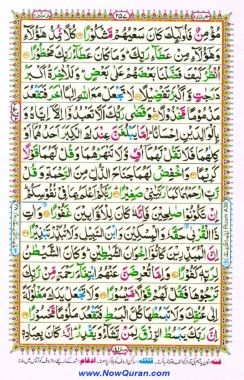 مُّؤْمِنٌ فَأُولٰٓئِكَ كَانَ سَعْيُهُمْ مَّشْكُوْرًا كُلًّا نُّمِدُّ هٰٓؤُلَآءِ
وَهٰٓؤُلَآءِ مِنْ عَطَآءِ رَبِّكَ وَمَا كَانَ عَطَآءُ رَبِّكَ مَحْظُوْرًا
اُنْظُرْ كَيْفَ فَضَّلْنَا بَعْضَهُمْ عَلٰى بَعْضٍ وَلَلْاٰخِرَةُ اَكْبَرُ
دَرَجٰتٍ وَّاَكْبَرُ تَفْضِيْلًا لَا تَجْعَلْ مَعَ اللّٰهِ اِلٰهًا اٰخَرَ فَتَقْعُدَ
مَذْمُوْمًا مَّخْذُوْلًا وَقَضٰى رَبُّكَ اَلَّا تَعْبُدُوْٓا اِلَّآ اِيَّاهُ وَ
بِالْوَالِدَيْنِ اِحْسَانًا اِمَّا يَبْلُغَنَّ عِنْدَكَ الْكِبَرَ اَحَدُهُمَآ اَوْ
كِلٰهُمَا فَلَا تَقُلْ لَّهُمَآ اُفٍّ وَّلَا تَنْهَرْهُمَا وَقُلْ لَّهُمَا قَوْلًا
كَرِيْمًا وَاخْفِضْ لَهُمَا جَنَاحَ الذُّلِّ مِنَ الرَّحْمَةِ وَقُلْ
رَّبِّ ارْحَمْهُمَا كَمَا رَبَّيٰنِيْ صَغِيْرًا رَبُّكُمْ اَعْلَمُ بِمَا فِيْ نُفُوْسِكُمْ
اِنْ تَكُوْنُوْا صٰلِحِيْنَ فَاِنَّهٗ كَانَ لِلْاَوَّابِيْنَ غَفُوْرًا وَاٰتِ
ذَا الْقُرْبٰى حَقَّهٗ وَالْمِسْكِيْنَ وَابْنَ السَّبِيْلِ وَلَا تُبَذِّرْ تَبْذِيْرًا
اِنَّ الْمُبَذِّرِيْنَ كَانُوْٓا اِخْوَانَ الشَّيٰطِيْنِ وَكَانَ الشَّيْطٰنُ
لِرَبِّهٖ كَفُوْرًا وَاِمَّا تُعْرِضَنَّ عَنْهُمُ ابْتِغَآءَ رَحْمَةٍ مِّنْ رَّبِّكَ
تَرْجُوْهَا فَقُلْ لَّهُمْ قَوْلًا مَّيْسُوْرًا وَلَا تَجْعَلْ يَدَكَ مَغْلُوْلَةً
اِلٰى عُنُقِكَ وَلَا تَبْسُطْهَا كُلَّ الْبَسْطِ فَتَقْعُدَ مَلُوْمًا مَّحْسُوْرًا
اِنَّ رَبَّكَ يَبْسُطُ الرِّزْقَ لِمَنْ يَّشَآءُ وَيَقْدِرُ اِنَّهٗ كَانَ بِعِبَادِهٖ
www.NowQuran.com